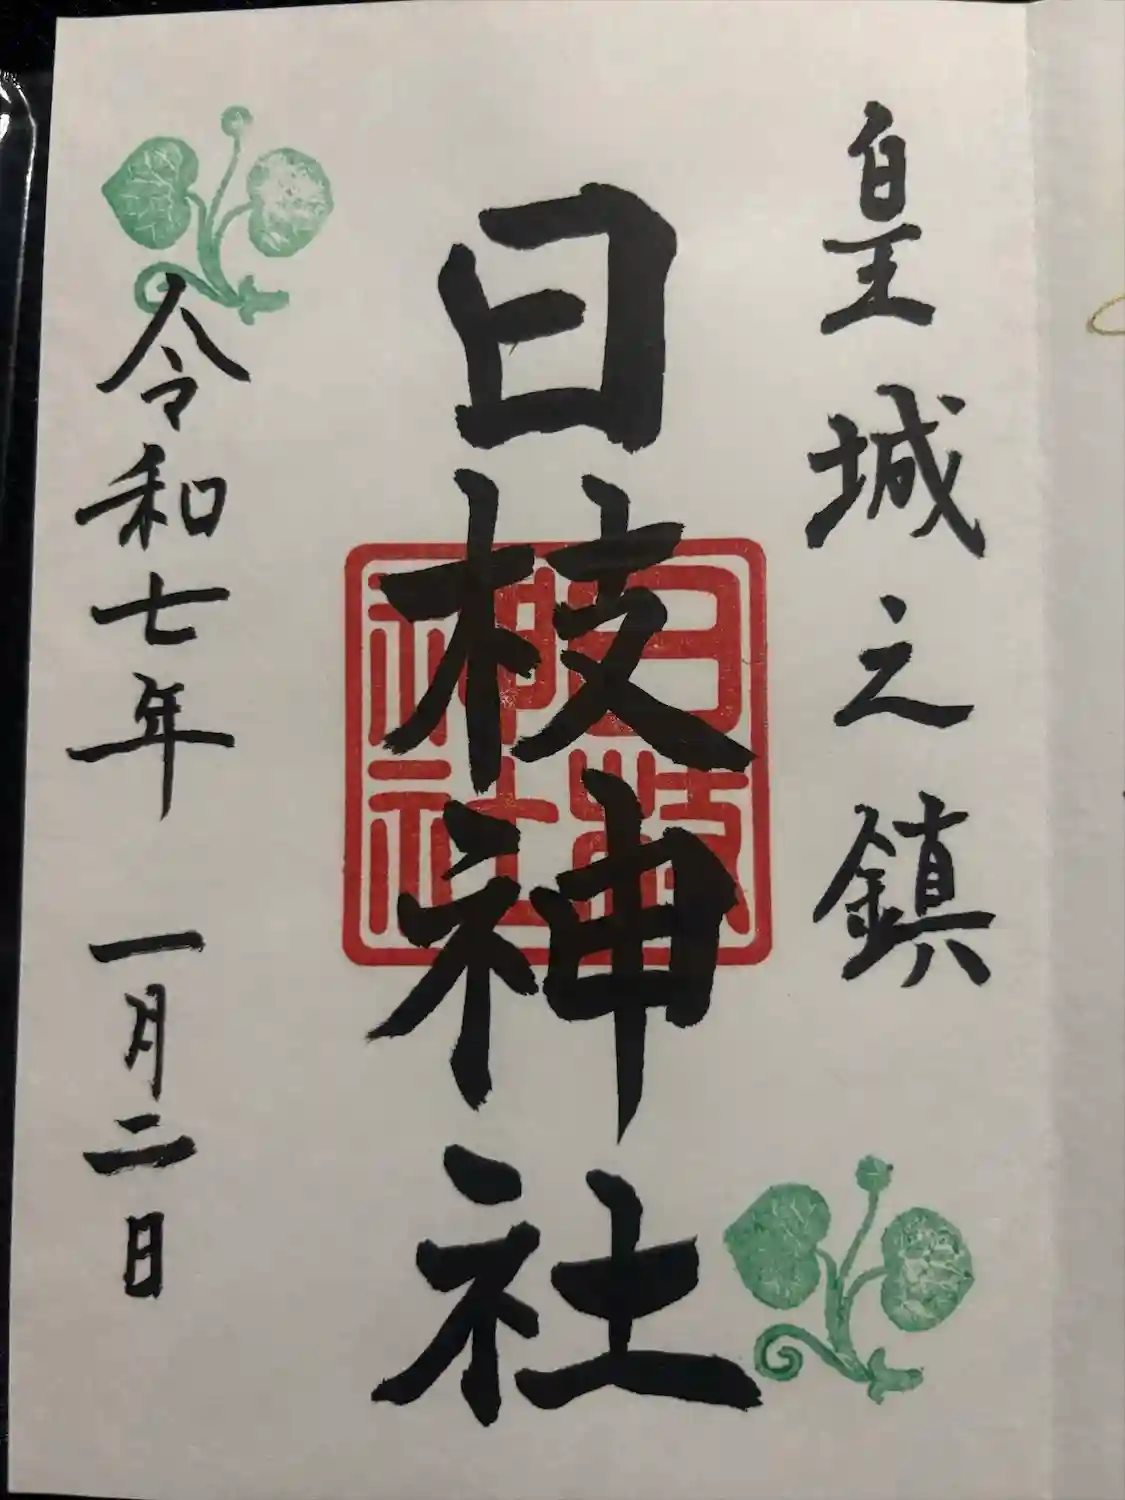 皇城之鎮
日枝神社
日枝神社
令和七年 一月二日